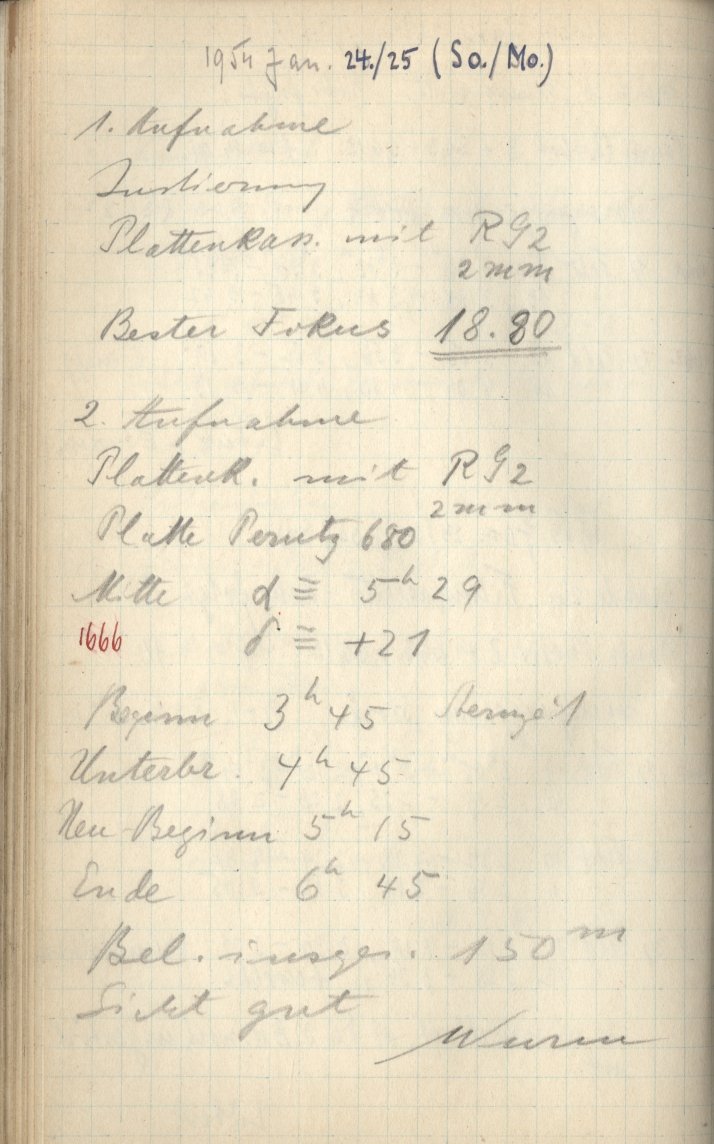 1954 Jan. 24./25 (So./Mo.)
1. Aufnahme
Justierung
Plattenkass. mit RG2
2 mm
Bester Fokus 18.80
2. Aufnahme
Plattenk. mit RG2
2 mm
Platte Perutz 680
Mitte α ≅ 5h 29
1666 δ ≅ +21
Beginn 3h 45 Sternzeit
Unterbr. 4h 45
Neu-Beginn 5h 15
Ende 6h 45
Bel. insges. 150m
Sicht gut
Wurm